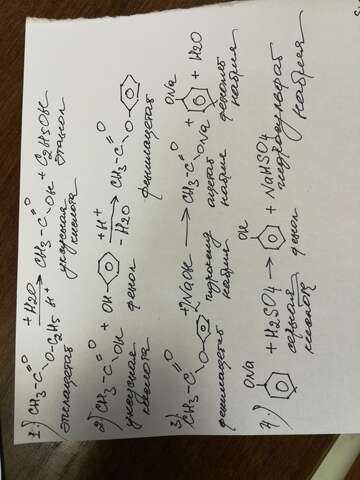 1.) CH3-C=O O-C2H5 +H2O → H+ CH3-C=O OH + C2H5OH
этилацетат уксусная кислота этанол
2) CH3-C=O OH + OH +H+ → -H2O CH3-C=O O
уксусная кислота фенол фенилацетат
3) CH3-C=O O +2NaOH → CH3-C=O ONa + ONa + H2O
фенилацетат гидроксид натрия ацетат натрия фенолят натрия
4.) ONa + H2SO4 → OH + NaHSO4
серная кислота фенол гидросульфат натрия